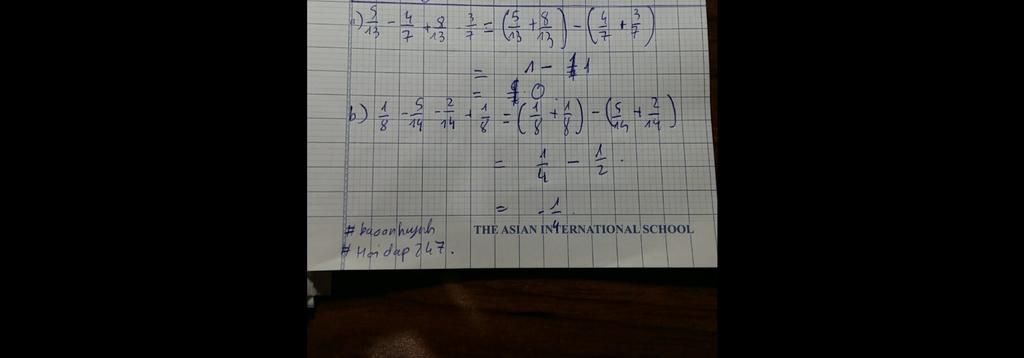 a) 5/13 - 4/7 + 8/13 - 3/7 = (5/13 + 8/13) - (4/7 + 3/7)
= 1 - 1
= 0
b) 1/8 - 5/14 - 2/14 + 1/8 = (1/8 + 1/8) - (5/14 + 2/14)
= 1/4 - 1/2
= -1/4
#baoanhuynh
THE ASIAN INTERNATIONAL SCHOOL
#Hoidap247.